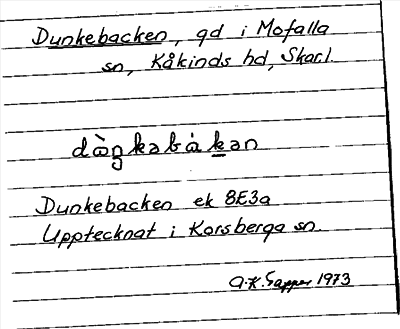 Dunkebacken, gd i Mofalla
sn, Kåkinds hd, Skarl.
dàŋkabákan
Dunkebacken ek 8E3a
Upptecknat i Korsberga sn.
A.K. 1973